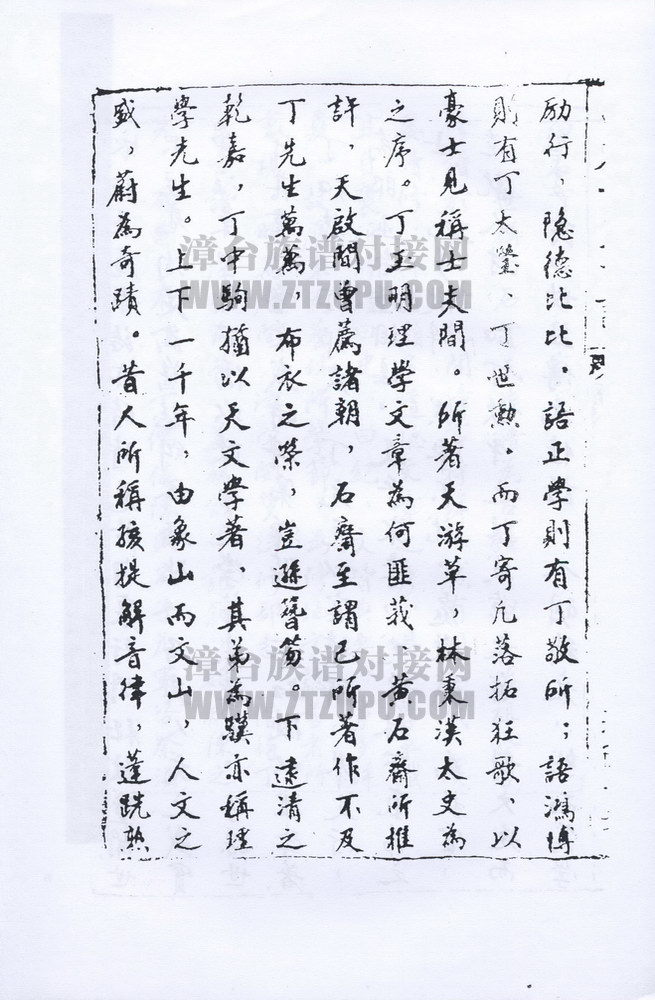 励行隐德比比。語正學則有丁敬所;語鴻博
則有丁太瑩、丁世勲。而丁寄凡落拓狂歌、以
豪士見稱士夫間。所著天游草,林秉漢太史為
之序。丁玉明理學文章為何匪莪、黄石齋所推
許,天啟間曾薦諸朝,石齋至謂己所著作不及
丁先生萬萬,布衣之榮,豈遜簪笏。下逮清之
乾嘉,丁中駒猶以天文學著,其弟為蹼亦稱理
學先生。上下一千年,由象山而文山,人文之
盛,蔚為奇蹟。昔人所稱孩提解音律,蓬跣熟
漳台族谱对接网
WWW.ZTZUPU.COM
漳台族谱对接网
WWW.ZTZUPU.COM